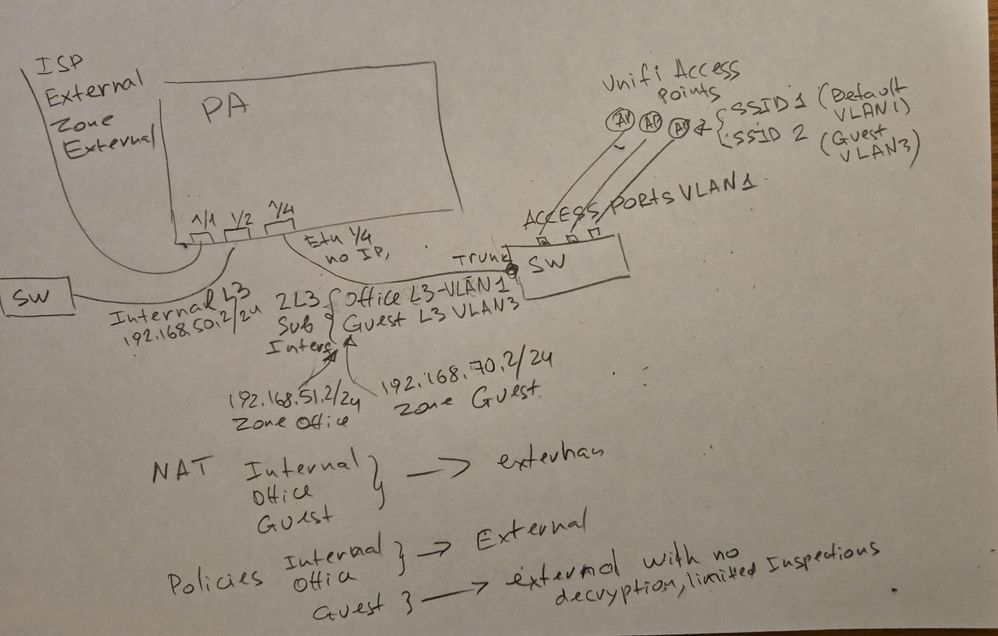 ISP
External
Zone
External
PA
1/1 1/2 1/4
Unifi Access
Points
AP AP AP
SSID 1 (Default
VLAN1)
SSID 2 (Guest
VLAN3)
ACCESS PORTS VLAN1
Eth 1/4
no IP,
Trunk
SW
SW
Internal L3
192.168.50.2/24
2L3
Sub
Inters
Office L3-VLAN1
Guest L3 VLAN3
192.168.51.2/24
Zone Office
192.168.70.2/24
Zone Guest
NAT Internal
Office
Guest
Policies Internal
Offic
External
Guest
external with no
decryption, limited Inspections